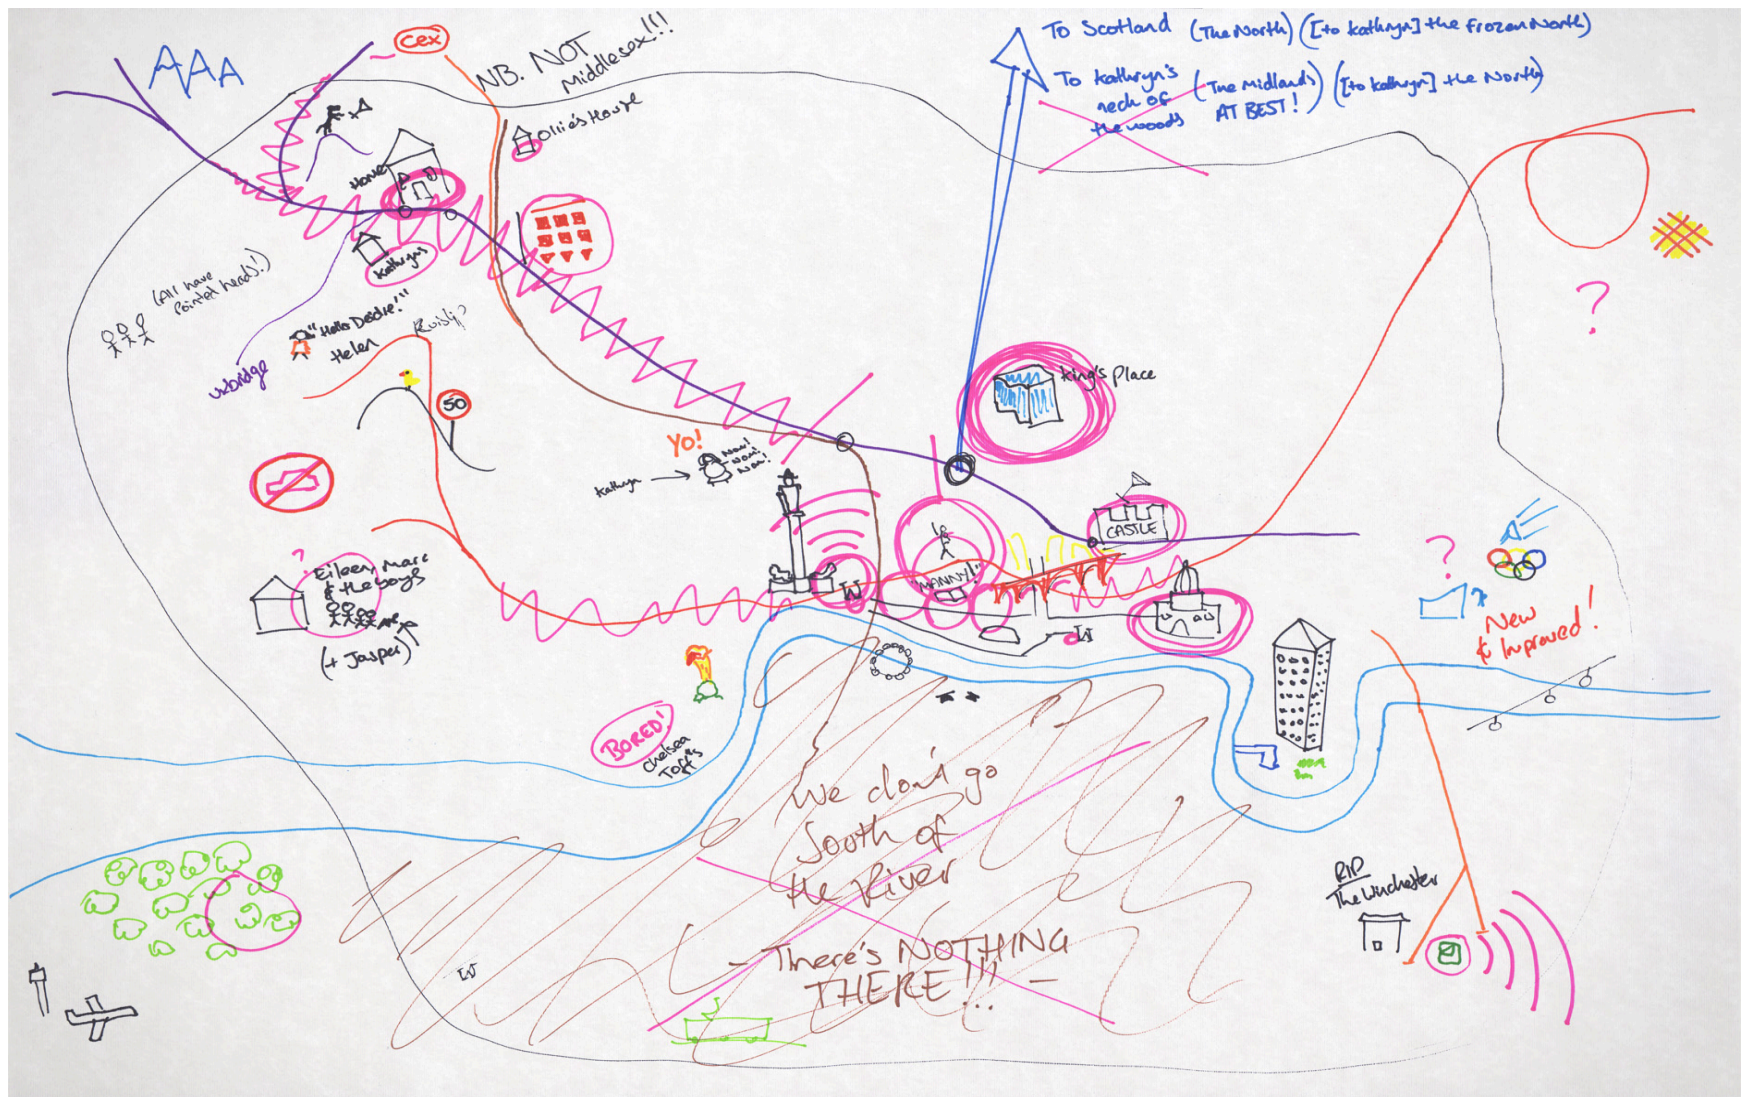 AAA
Cex
NB. NOT
Middlesex!!!
Ollie's House
To Scotland (The North) ([to Kathryn] the Frozen North)
To Kathryn's
neck of
the woods
(The Midlands)
AT BEST!
([to Kathryn] the North)
Home
Kathryn's
(All have
Pointed heads!)
"Hello Deidre!"
Helen
Ruislip
Uxbridge
50
King's Place
YO!
Kathryn →
Nom!
Nom!
Nom!
CASTLE
"MANNY!"
W
W
?
?
?
Eileen, Marc
& the boys
(+ Jasper)
New
& Improved!
BORED!
Chelsea
Toffs
We don't go
South of
the River
- There's NOTHING
THERE!!! -
RIP
The Winchester
W